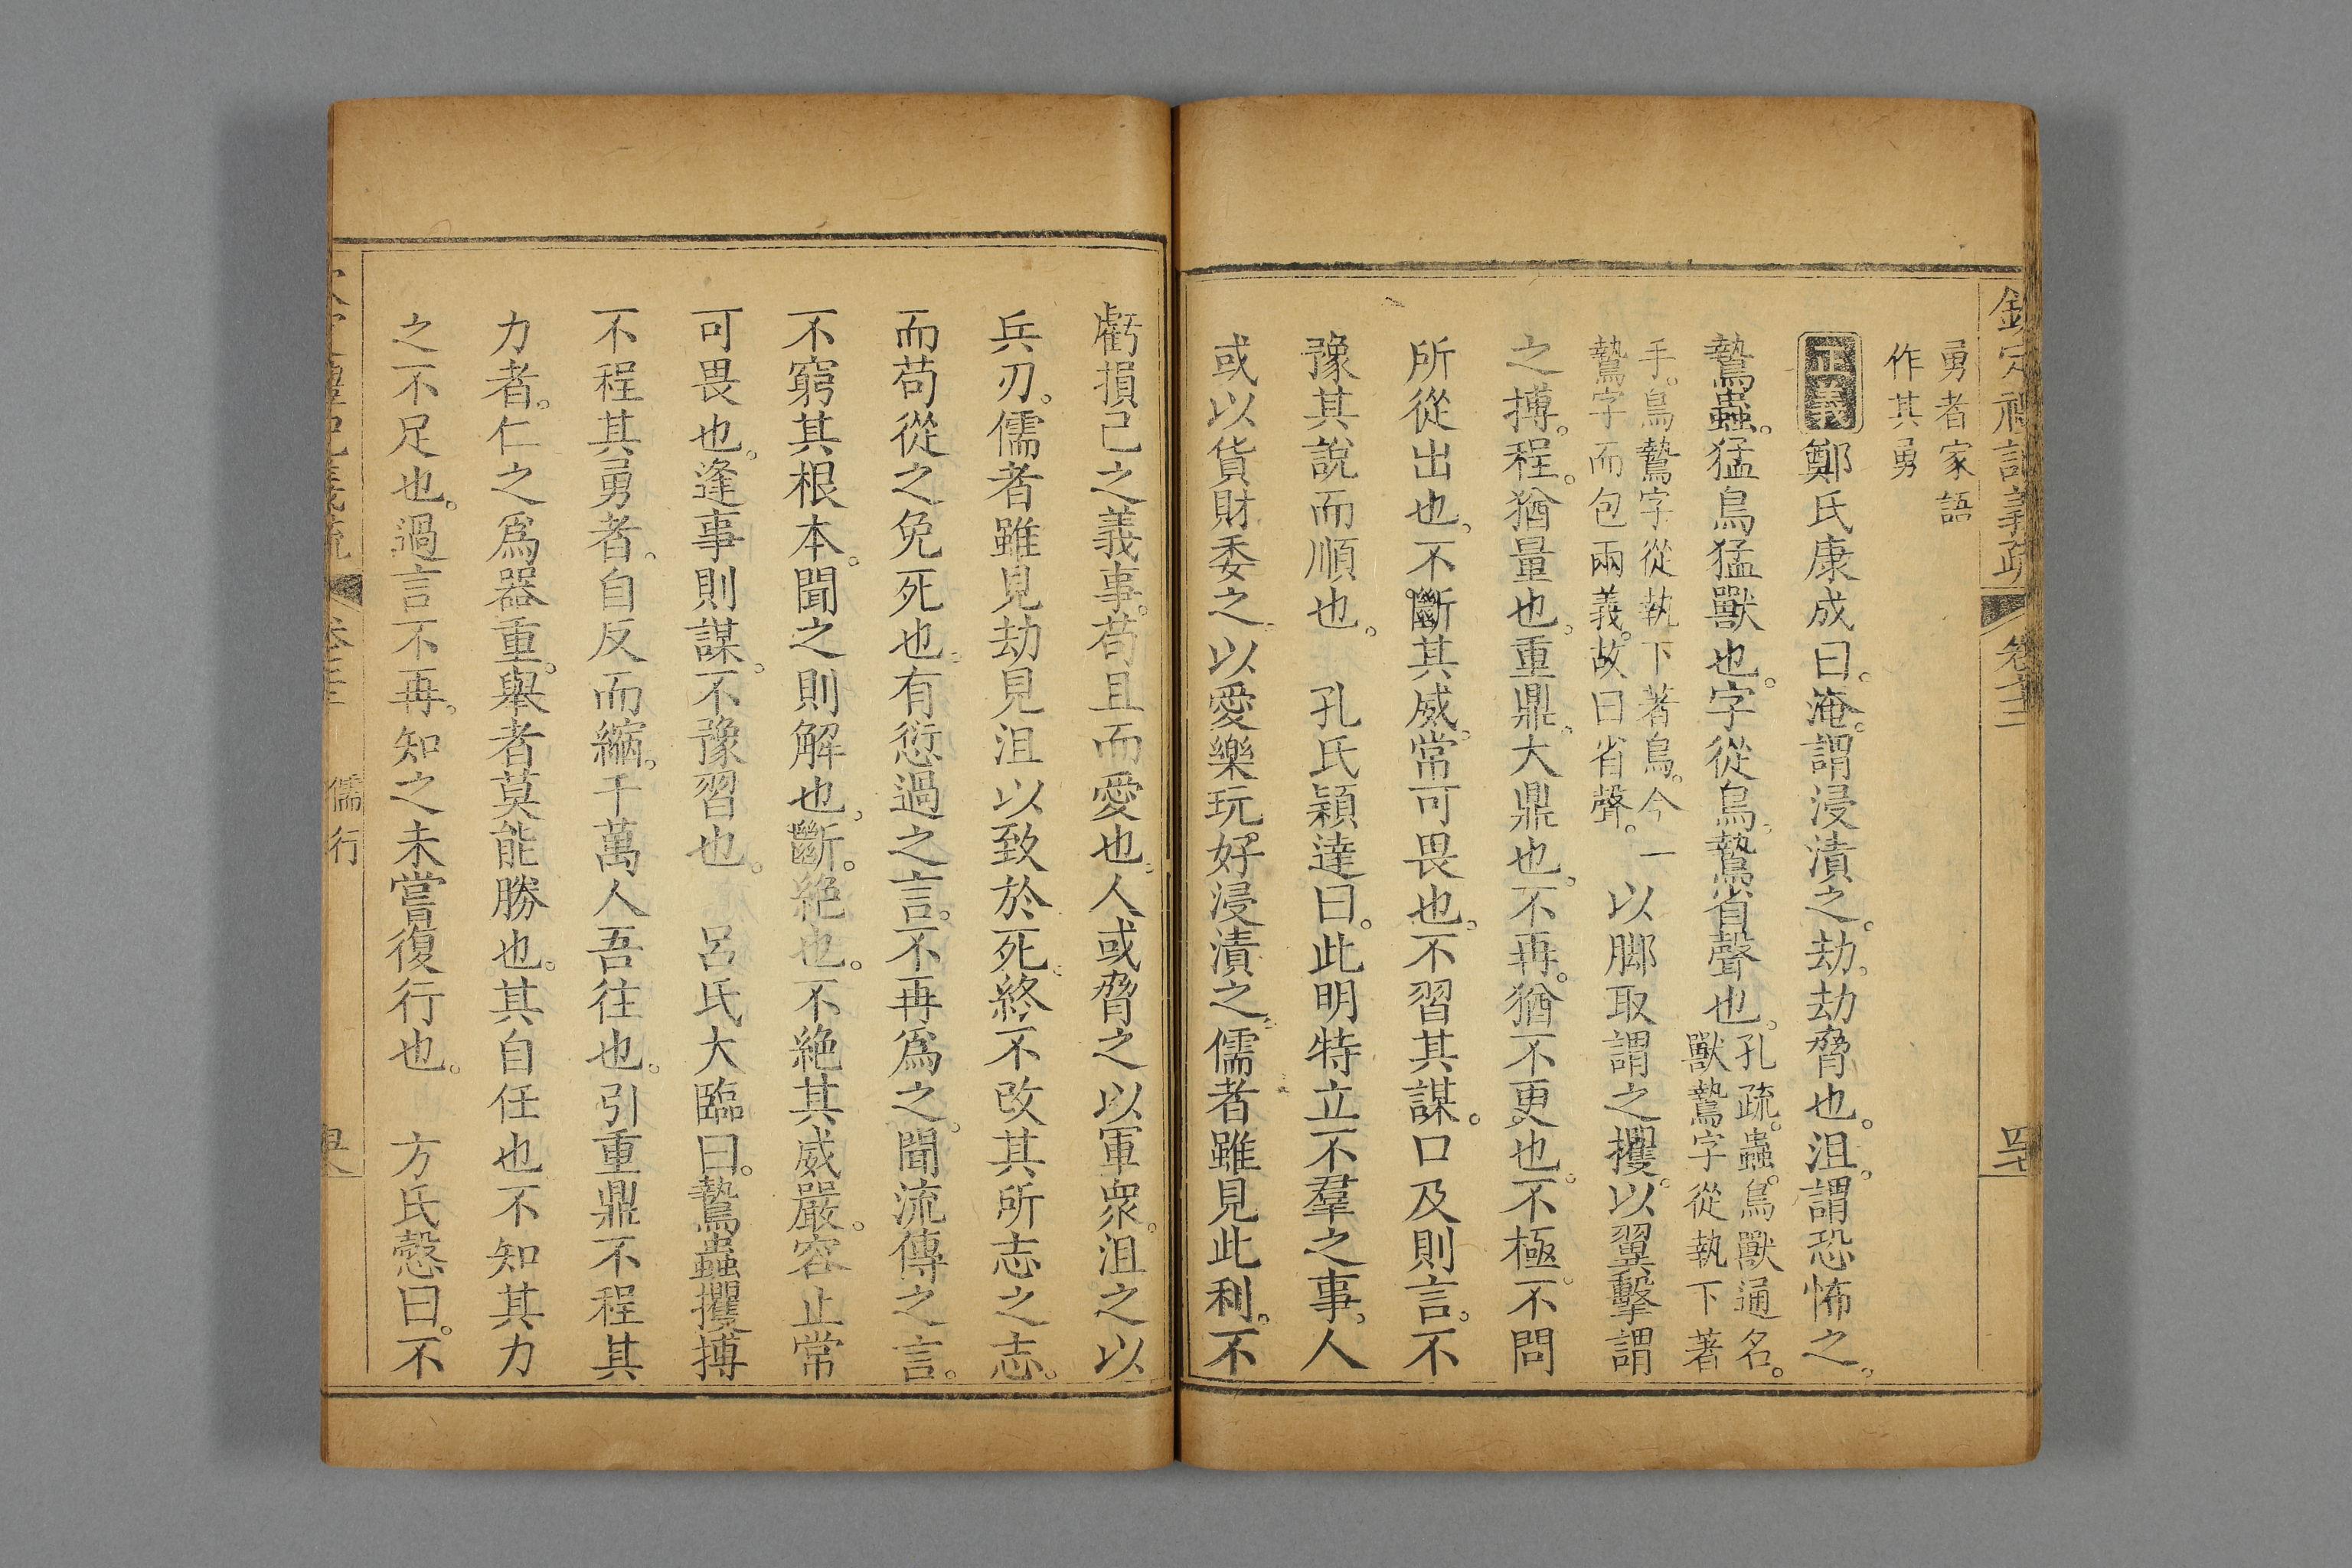 欽定禮記義疏 卷七十二
勇者家語
作其勇
正義 鄭氏康成曰。淹。謂浸漬之。劫。劫脅也。沮。謂恐怖之。
鷙蟲。猛鳥猛獸也。字從鳥。鷙省聲也。孔疏。蟲。鳥獸通名。
獸鷙字從執下著
手。鳥鷙字從執下著鳥。今一
鷙字而包兩義。故曰省聲。以腳取謂之攫。以翼擊謂
之搏。程。猶量也。重鼎。大鼎也。不再。猶不更也。不極。不問
所從出也。不斷其威。常可畏也。不習其謀。口及則言。不
豫其說而順也。 孔氏穎達曰。此明特立不羣之事。人
或以貨財委之。以愛樂玩好浸漬之。儒者雖見此利。不
虧損己之義事。苟且而愛也。人或脅之以軍衆。沮之以
兵刃。儒者雖見劫見沮以致於死。終不改其所志之志。
而苟從之免死也。有愆過之言。不再爲之。聞流傳之言。
不窮其根本。聞之則解也。斷。絕也。不絕其威嚴。容止常
可畏也。逢事則謀。不豫習也。 呂氏大臨曰。鷙蟲攫搏
不程其勇者。自反而縮。千萬人吾往也。引重鼎不程其
力者。仁之爲器重。舉者莫能勝也。其自任也不知其力
之不足也。過言不再。知之未嘗復行也。 方氏慤曰。不
儒行